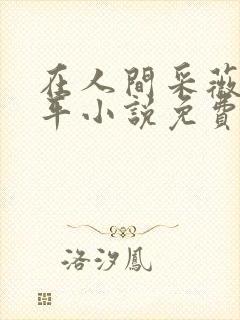 在人間采薇
年小說免費
洛汐鳳